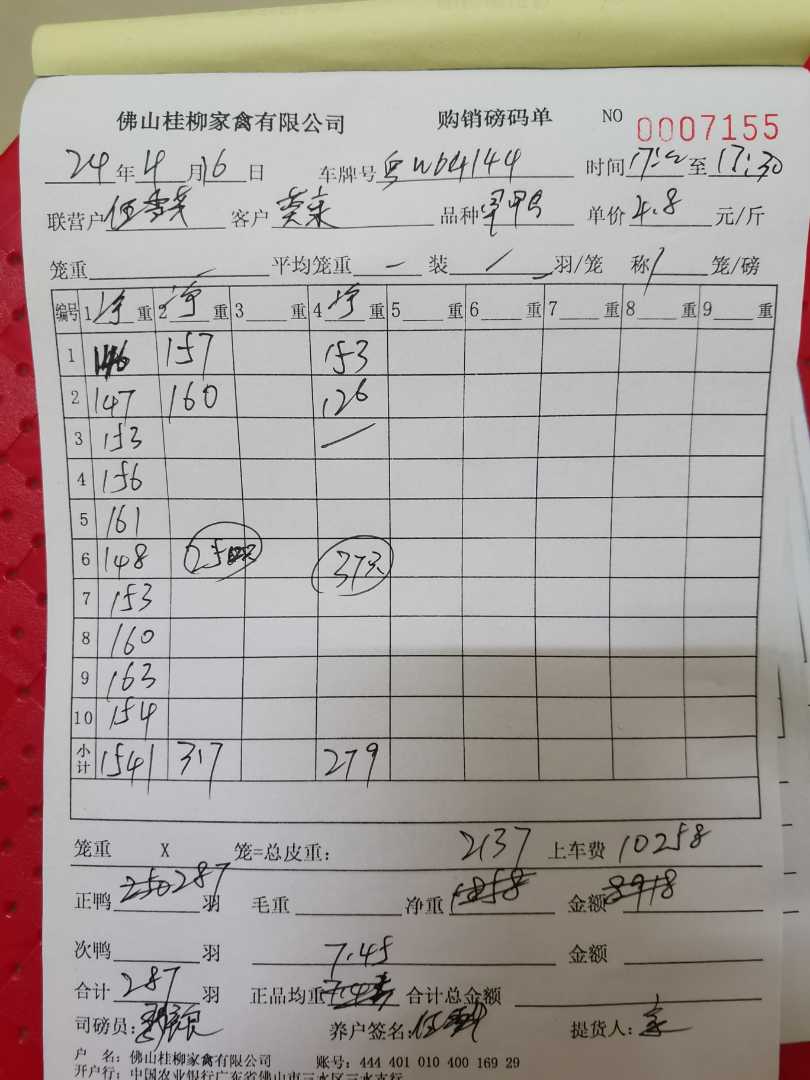 佛山桂柳家禽有限公司 购销磅码单 NO 0007155
24年4月16日 车牌号粤W04144 时间 至17:30
联营户 客户 品种 单价4.8元/斤
笼重 — 平均笼重 — 装 / 羽/笼 称 / 笼/磅
编号 1净重 2净重 3重 4净重 5重 6重 7重 8重 9重
1 146 157 153
2 147 160 126
3 153 —
4 156
5 161
6 148 37只
7 153
8 160
9 163
10 154
小计 1541 317 279
笼重 X 笼=总皮重: 2137 上车费 10258
正鸭 250 287 羽 毛重 净重 金额 8918
次鸭 羽 7.45 金额
合计 287 羽 正品均重 合计总金额
司磅员: 养户签名: 提货人:
户 名: 佛山桂柳家禽有限公司 账号: 444 401 010 400 169 29
开户行: 中国农业银行广东省佛山市三水区三水支行